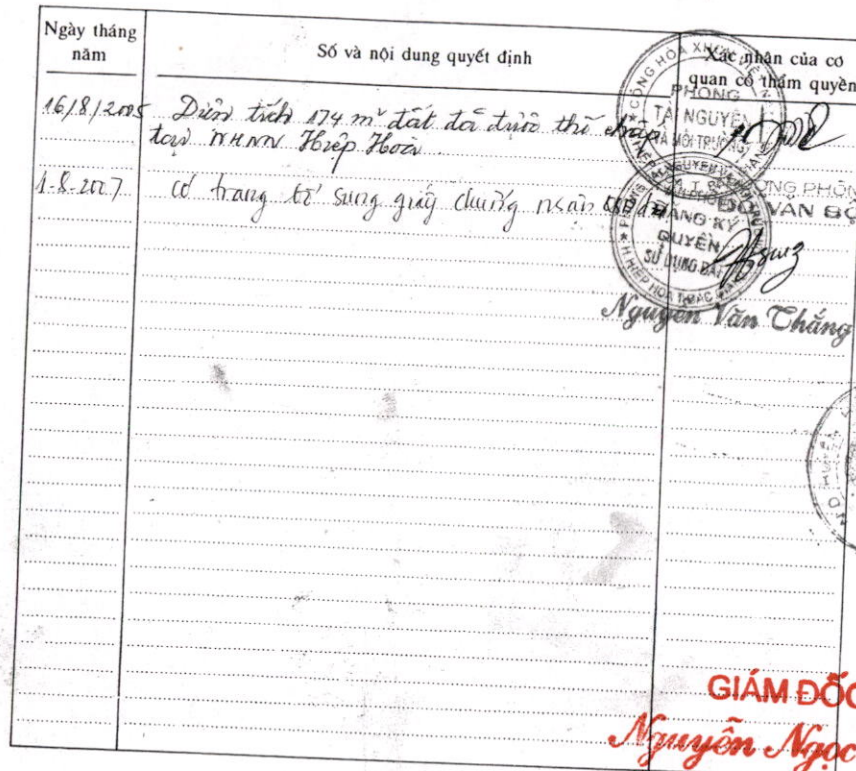 Ngày tháng năm
Số và nội dung quyết định
Xác nhận của cơ quan có thẩm quyền
16/8/2005 Diện tích 174 m² đất đã được thế chấp
tại NHNN Hiệp Hoà
CỘNG HÒA XHCN VIỆT N
PHÒNG
TÀI NGUYÊN
VÀ MÔI TRƯỜNG
1-8-2007 có trang bổ sung giấy chứng nhận
ĐỖ VĂN BỘ
ĐĂNG KÝ
QUYỀN
SỬ DỤNG ĐẤT
Nguyễn Văn Thắng
GIÁM ĐỐC
Nguyễn Ngọc